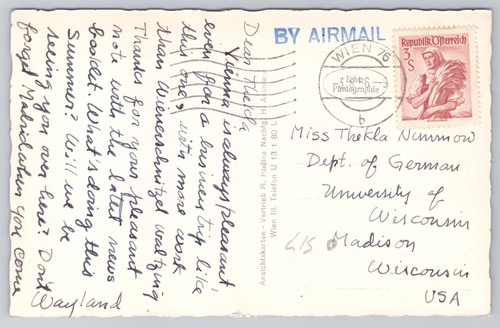 Dear Thekla
Vienna is always pleasant
even for a business trip like
this one, with more work
than Wienerschnitzel waltzing.
Thanks for your pleasant
note with the latest news
budget. What's doing this
Summer? Will we be
seeing you over here? Don't
forget Madrid when you come
Wayland
BY AIRMAIL
WIEN 76
Photographie
b
Republik Österreich
3S
Miss Thekla
Dept. of German
University of
Wisconsin
Madison
Wisconsin
USA
Ansichtskarten - Vertrieb R. Hodina Nachflg.
Wien III, Telefon U 13 1 80 L